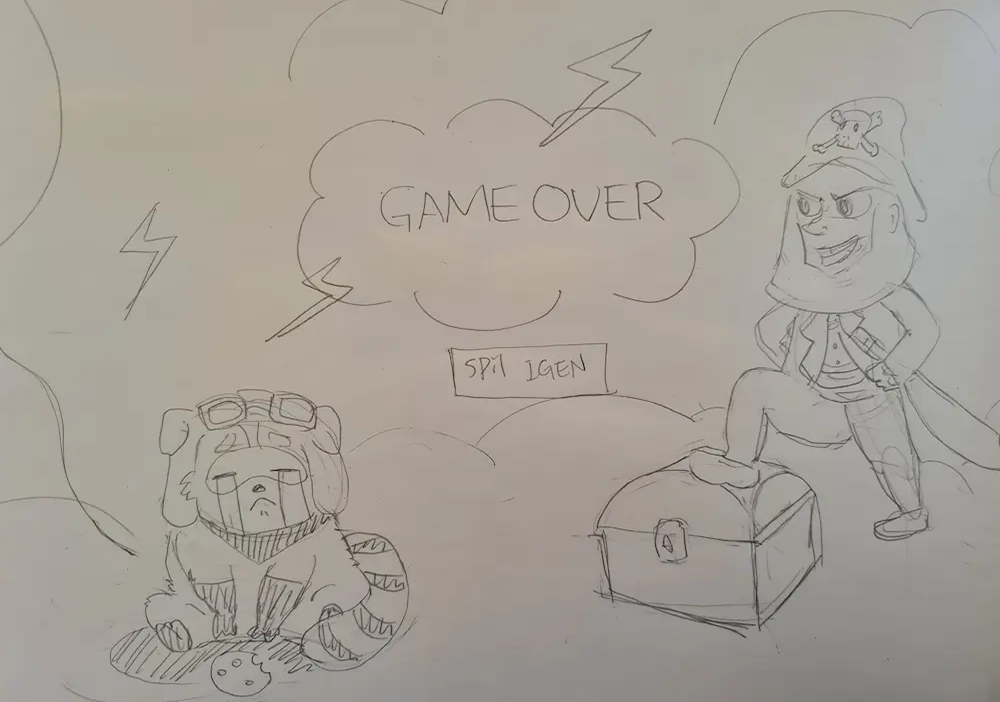 GAME OVER
SPil IGEN